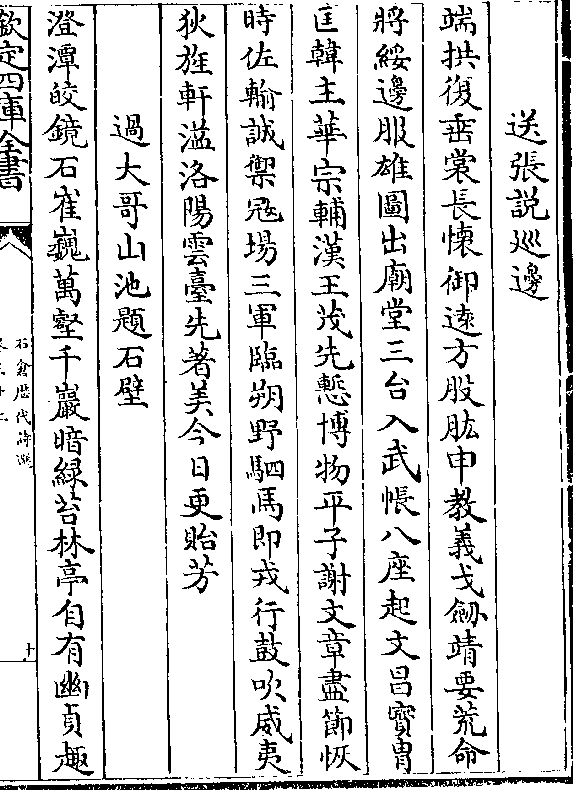 送張説巡邊
端拱復垂裳長懷御逺方股肱申教義戈劒靖要荒命
將綏邊服雄圖出廟堂三台入武帳八座起文昌寳胄
匡韓主華宗輔漢王茂先慙博物平子謝文章盡節恢
時佐輸誠禦冦場三軍臨朔野駟馬即戎行鼓吹威夷
狄旌軒溢洛陽雲臺先著美今日更貽芳
過大哥山池題石壁
澄潭皎鏡石崔巍萬壑千巖暗緑苔林亭自有幽貞趣
欽定四庫全書
石倉歴代詩選
十